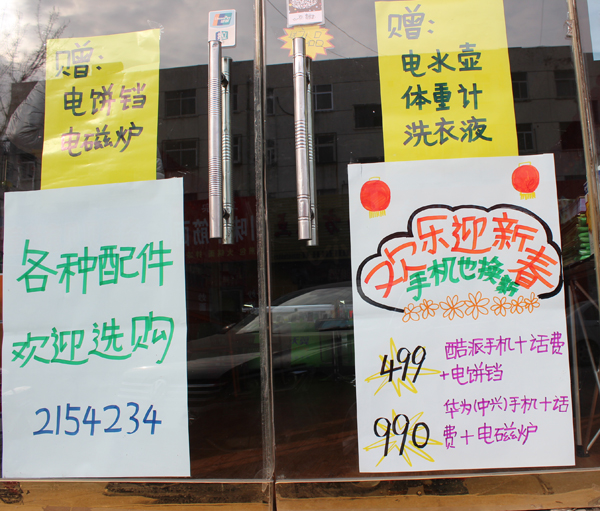 赠:
电饼铛
电磁炉
各种配件
欢迎选购
2154234
赠:
电水壶
体重计
洗衣液
欢乐迎新春
手机也换新
499
酷派手机+话费
+电饼铛
990
华为(中兴)手机+话
费+电磁炉